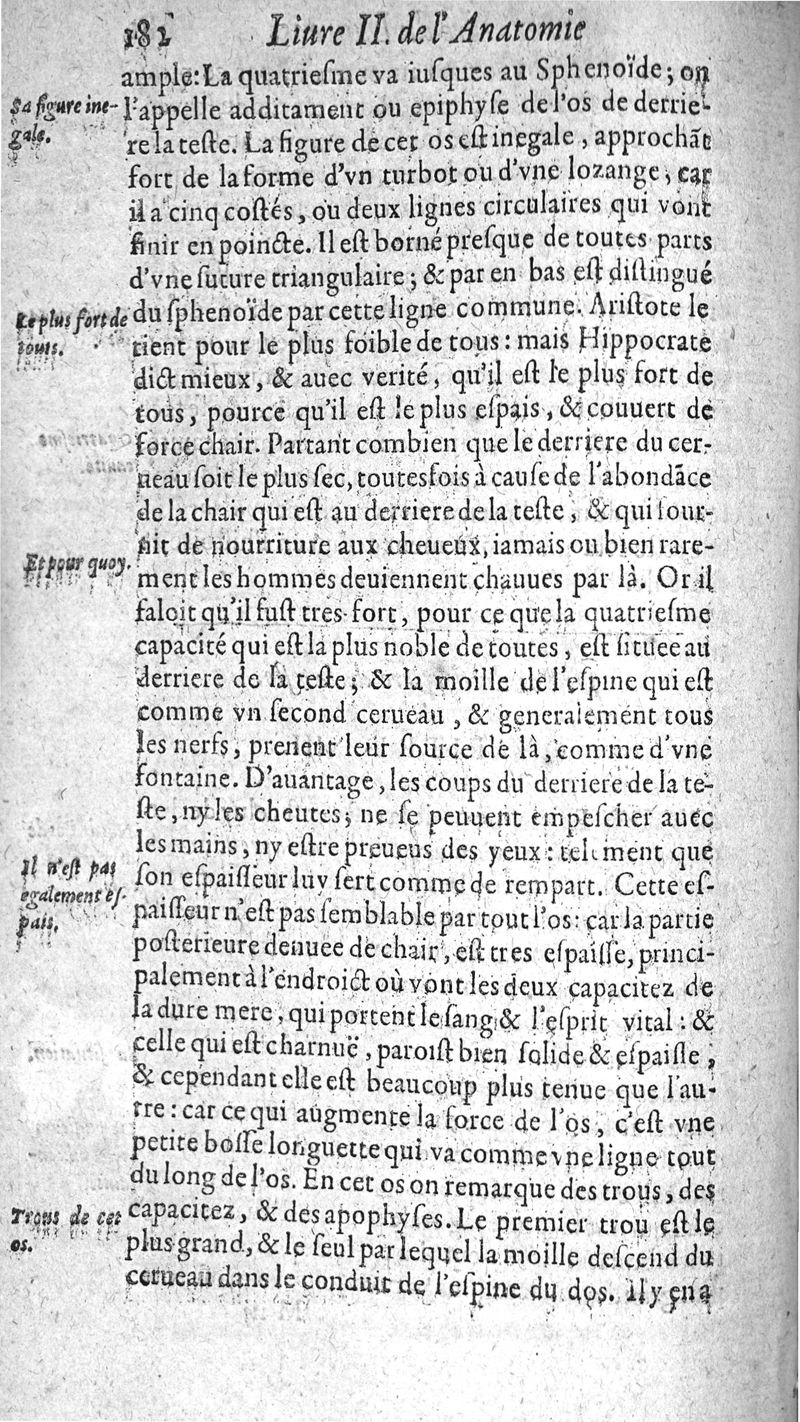 182 Liure II. de l'Anatomie
ample: La quatriesme va iusques au Sphenoïde; on
Sa figure ine-
gale.
l'appelle additament ou epiphyse de l'os de derrie-
re la teste. La figure de cet os est inegale, approchãt
fort de la forme d'vn turbot ou d'vne lozange, car
il a cinq costés, ou deux lignes circulaires qui vont
finir en poincte. Il est borné presque de toutes parts
d'vne suture triangulaire; & par en bas est distingué
Le plus fort de
tous.
du sphenoïde par cette ligne commune. Aristote le
tient pour le plus foible de tous: mais Hippocrate
dict mieux, & auec verité, qu'il est le plus fort de
tous, pource qu'il est le plus espais, & couuert de
force chair. Partant combien que le derriere du cer-
ueau soit le plus sec, toutesfois à cause de l'abondãce
de la chair qui est au derriere de la teste, & qui four-
Et pour quoy.
nit de nourriture aux cheueux, iamais ou bien rare-
ment les hommes deuiennent chauues par là. Or il
faloit qu'il fust tres-fort, pour ce que la quatriesme
capacité qui est la plus noble de toutes, est situee au
derriere de la teste; & la moille de l'espine qui est
comme vn second cerueau, & generalement tous
les nerfs, prenent leur source de là, comme d'vne
fontaine. D'auantage, les coups du derriere de la te-
ste, ny les cheutes, ne se peuuent empescher auec
les mains, ny estre preueus des yeux: telement que
Il n'est pas
egalement es-
pais.
son espaisseur luy sert comme de rempart. Cette es-
paisseur n'est pas semblable par tout l'os: car la partie
posterieure denuee de chair, est tres espaisse, princi-
palement à l'endroict où vont les deux capacitez de
la dure mere, qui portent le sang & l'esprit vital: &
celle qui est charnuë, paroist bien solide & espaisse,
& cependant elle est beaucoup plus tenue que l'au-
tre: car ce qui augmente la force de l'os, c'est vne
petite bosse longuette qui va comme vne ligne tout
du long de l'os. En cet os on remarque des trous, des
Trous de cet
os.
capacitez, & des apophyses. Le premier trou est le
plus grand, & le seul par lequel la moille descend du
cerueau dans le conduit de l'espine du dos. il y en a